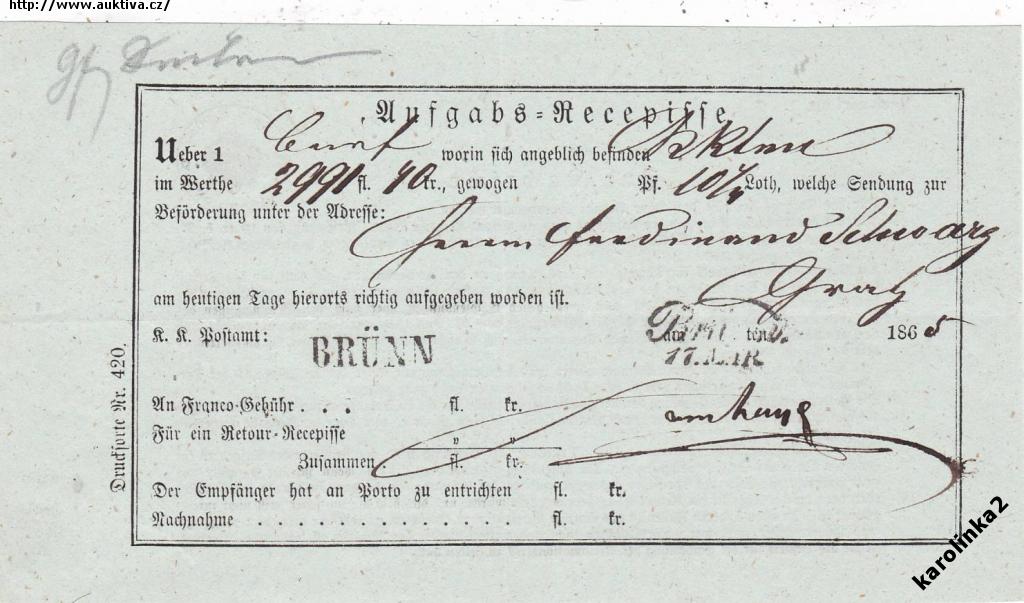 http://www.auktiva.cz/
Aufgabs-Recepisse
Ueber 1 Brief worin sich angeblich befinden Akten
im Werthe 2991 fl. 40 kr., gewogen Pf. 10 1/4 Loth, welche Sendung zur
Beförderung unter der Adresse:
Herrn Ferdinand Schwarz
Graz
am heutigen Tage hierorts richtig aufgegeben worden ist.
K. K. Postamt: BRÜNN am ten 1865
17. MÄR
An Franco-Gebühr . . . fl. kr.
Für ein Retour-Recepisse " "
Zusammen . fl. kr.
Der Empfänger hat an Porto zu entrichten fl. kr.
Nachnahme . . . . . . . . . . . . . fl. kr.
Drucksorte Nr. 420.
karolinka2